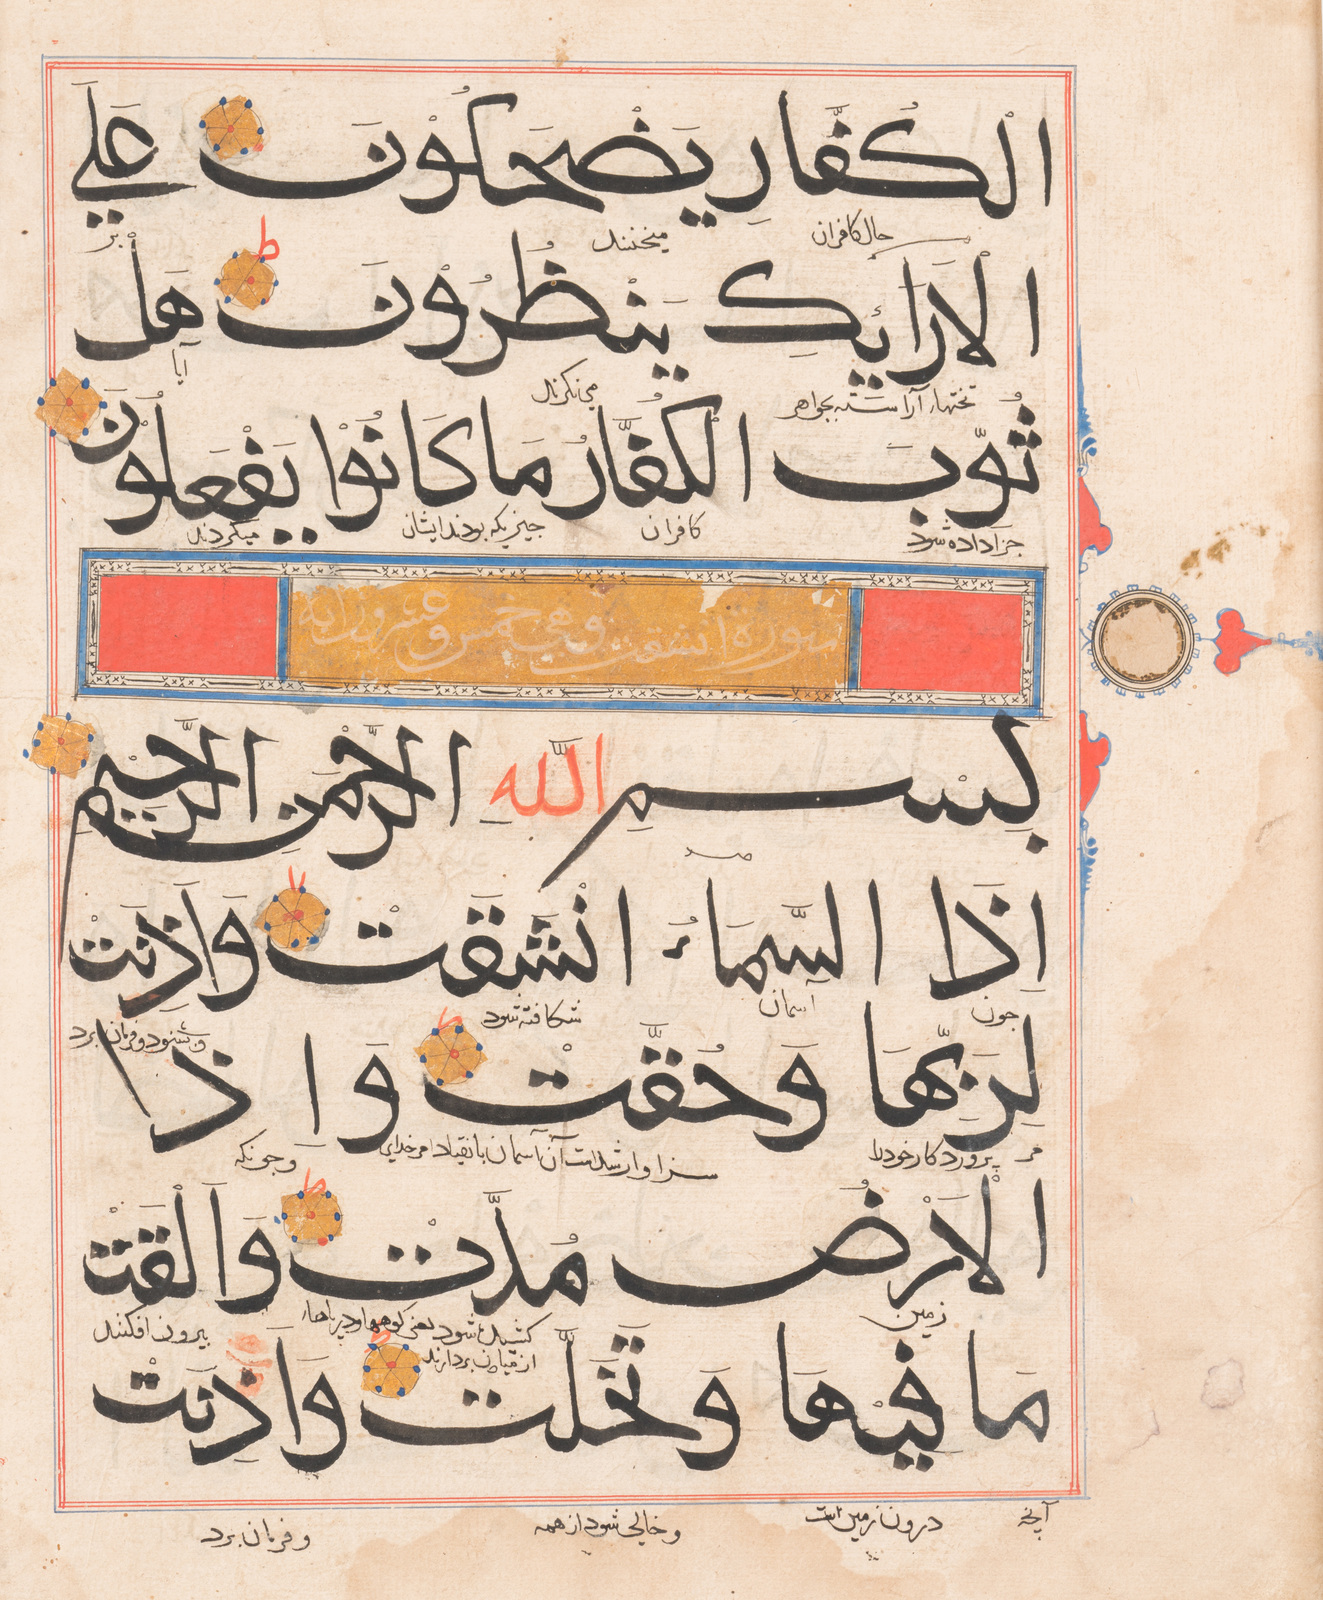 الكُفَّارِ يَضْحَكُوْنَ عَلَي
حال کافران میخندند بر
الْاَرَائِكِ يَنْظُرُوْنَ ط هَلْ
تختهاء آراسته بجواهر می نکرند آیا
ثُوِّبَ الْكُفَّارُ مَا كَانُوْا يَفْعَلُوْنَ
جزا داده شود کافران چیزیکه بودند ایشان میکردند
سورة انشقت وهي خمس وعشرون اية
بِسْمِ اللّٰهِ الرَّحْمٰنِ الرَّحِيْمِ
اِذَا السَّمَاءُ انْشَقَّتْ لا وَاَذِنَتْ
چون آسمان شکافته شود وبشنود وفرمان برد
لِرَبِّهَا وَحُقَّتْ لا وَاِذَا
مر پروردکار خودرا سزاوار شدست آن آسمان بانقیاد امر خدای وچونکه
الْاَرْضُ مُدَّتْ لا وَاَلْقَتْ
زمین کشیده شود یعنی کوهها ودریاهاء از میان بردارند بیرون افکند
مَا فِيْهَا وَتَخَلَّتْ لا وَاَذِنَتْ
آنچه درون زمین است وخالی شود از همه وفرمان برد